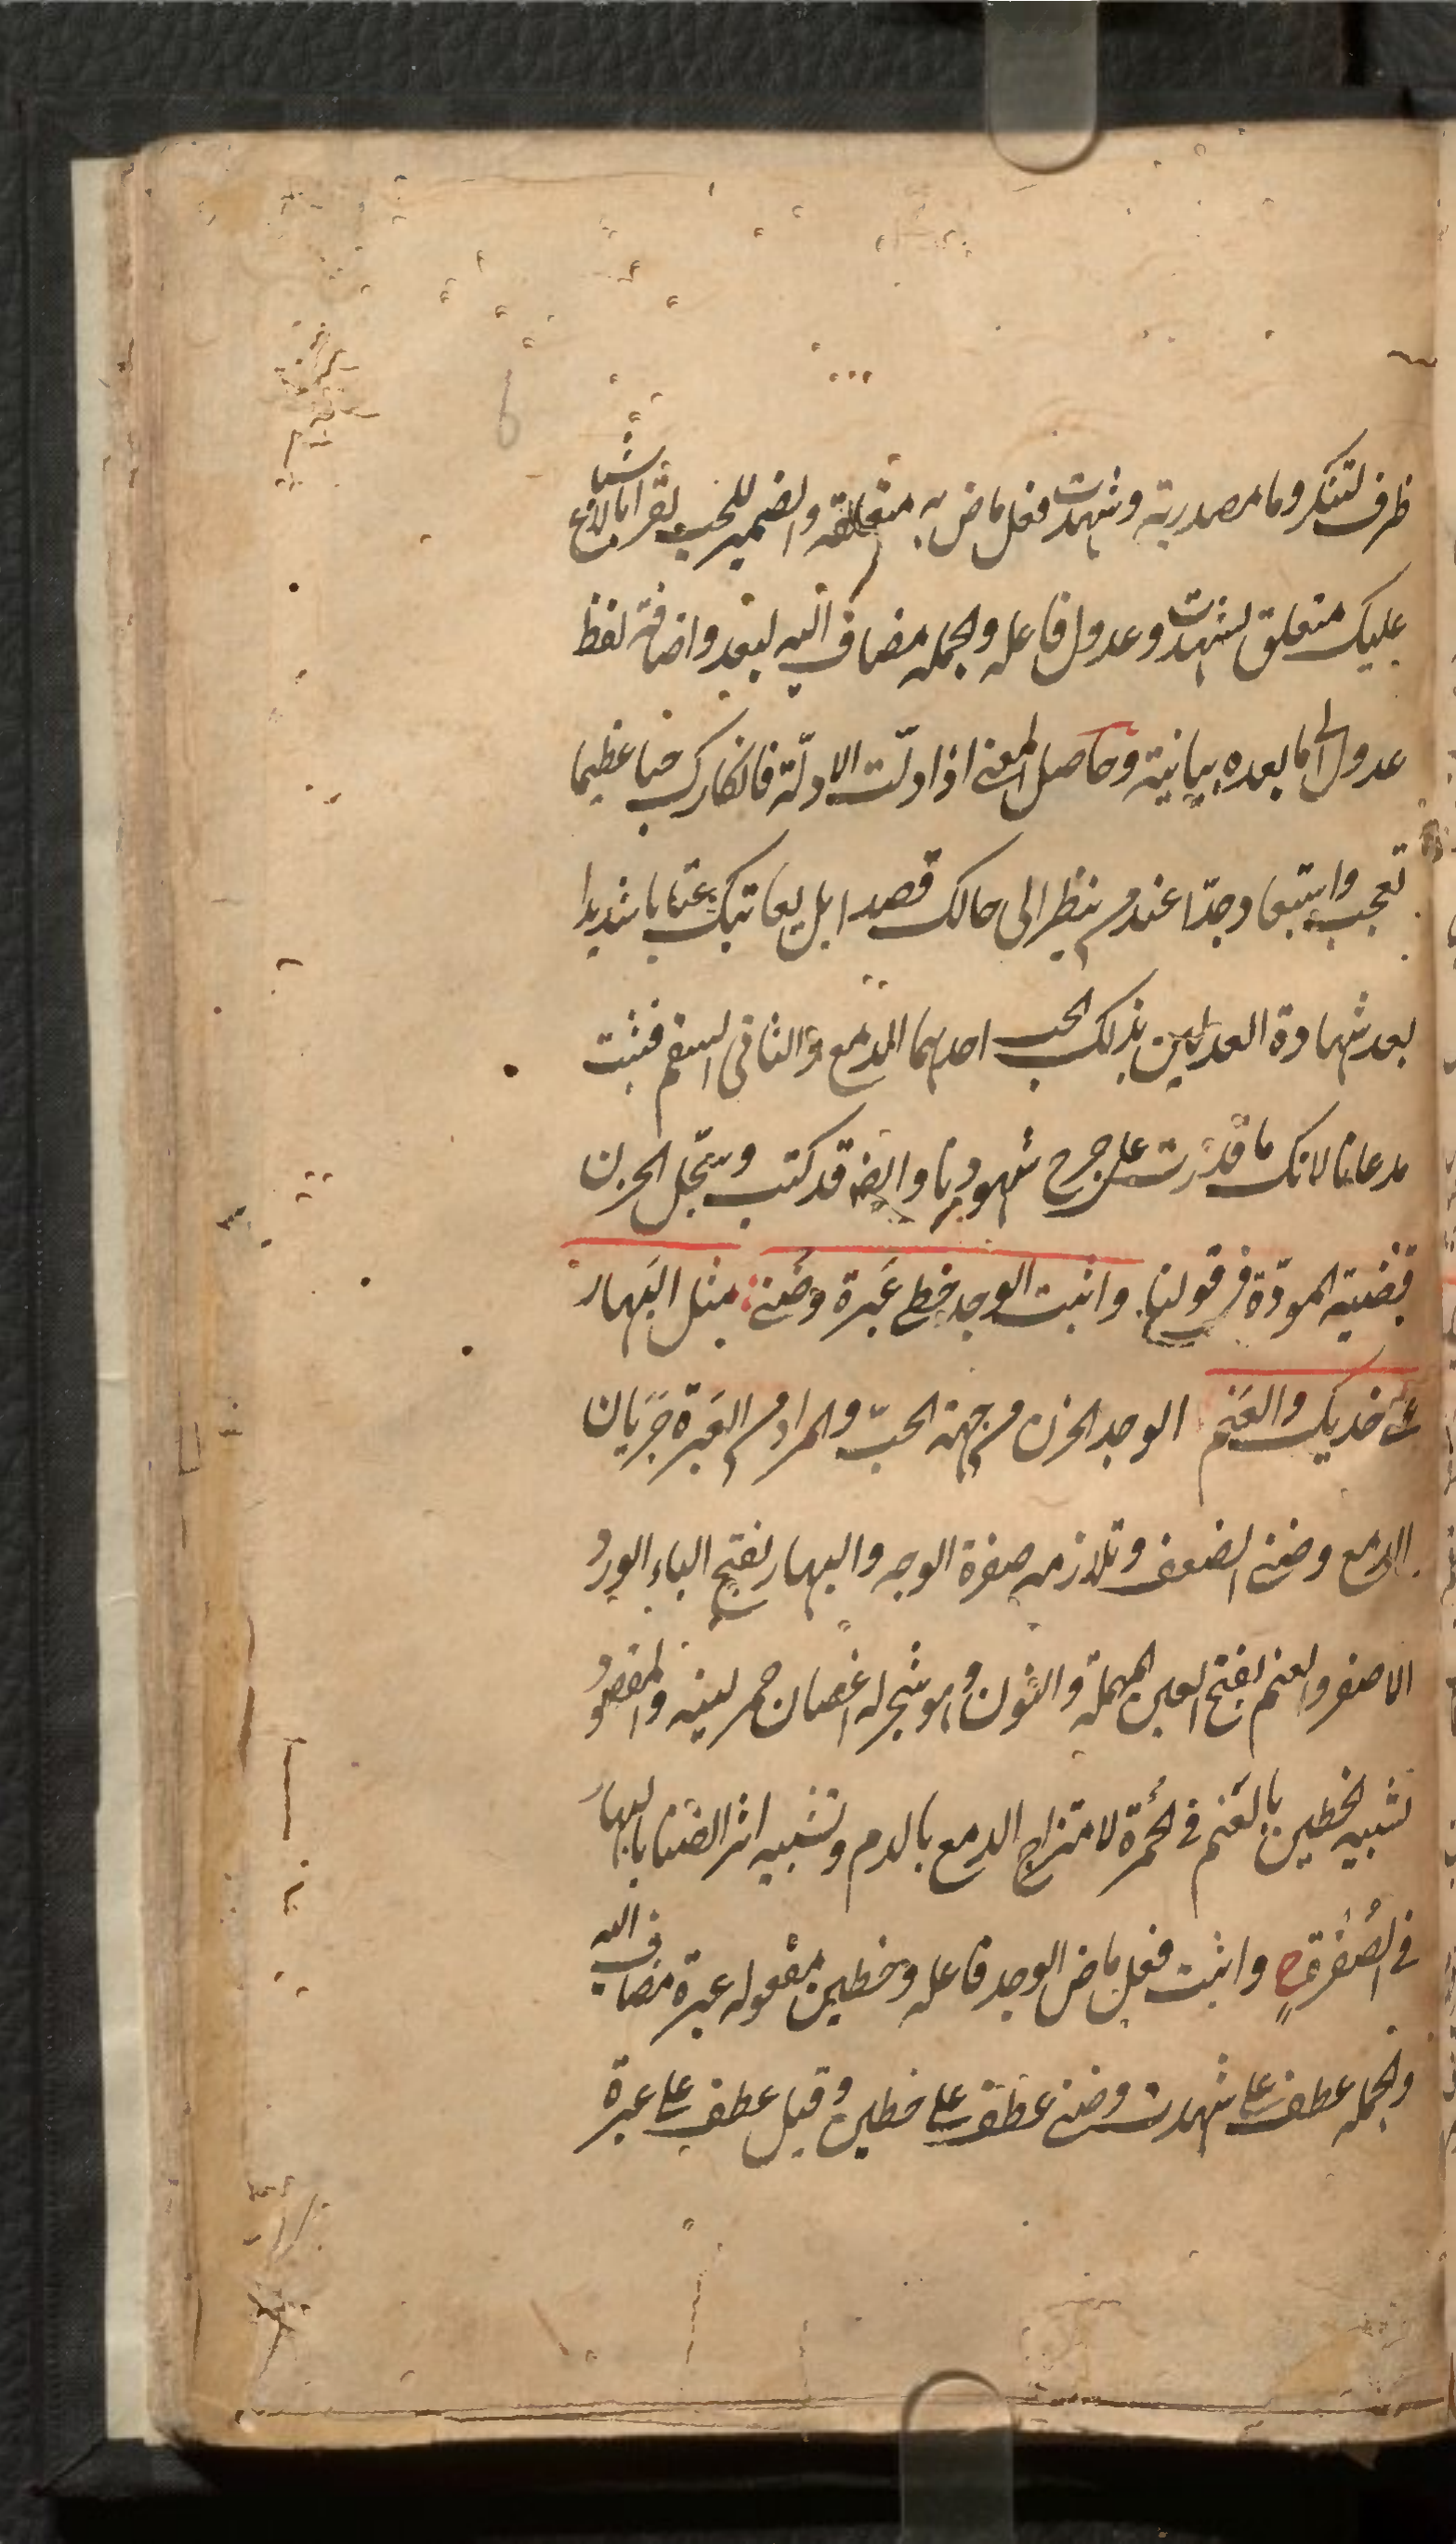 ظرف لتنكر وما مصدرية وشهدت فعل ماض به متعلقه والضمير للحب
عليك متعلق لشهدت وعدول فاعله والجملة مضاف اليه لبعد واضافة لفظ
عدول الى ما بعده بيانية وحاصل المعنى اذا دلّت الادلّة فانكارك حبا عظيما
تعجب واستبعاد جدّا عند من ينظر الى حالك قصدا بل يعاتبك عتابا شديدا
بعد شهادة العدلين بذلك الحب احدهما الدمع والثانى السقم فثبت
مدعانا لانك ما قدرت على جرح شهودنا وايضا قد كتب وسجّل الحزن
قضية المودّة فى قولنا واثبت الوجد خطى عَبرة وضَنى مثل البَهار
على خديك والعَنم الوجد الحزن من جهة الحبّ والمراد من العَبرة جَرَيان
الدمع وضنى الضعف وتلازمه صفرة الوجه والبهار بفتح الباء الورد
الاصفر والعنم بفتح العين المهملة والنون وهو شجر له اغصان حمر لينه والمقصود
تشبيه الخطين بالعَنم فى الحُمرة لامتزاج الدمع بالدم وتشبيه اثر الضنا بالبهار
فى الصُفرة واثبت فعل ماض الوجد فاعله وخطين مفعوله عبرة مضاف اليه
والجملة عطف على شهدت وضنى عطف على خطين وقيل عطف على عبرة